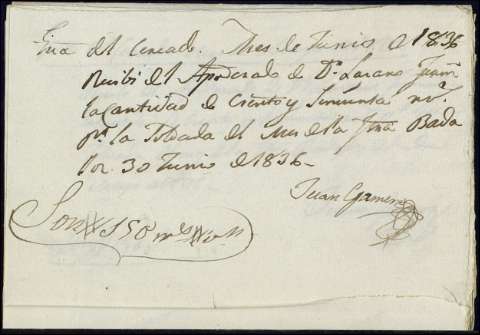 del Cercado. Mes de Junio de 1836
Recibi del Apoderado de Dn. Lazaro
la Cantidad de Ciento y Sinquenta rrs.
pr. la del Mes de la fha Bada
30 Junio de 1836_
Juan Gamero
Son 150 rrs von